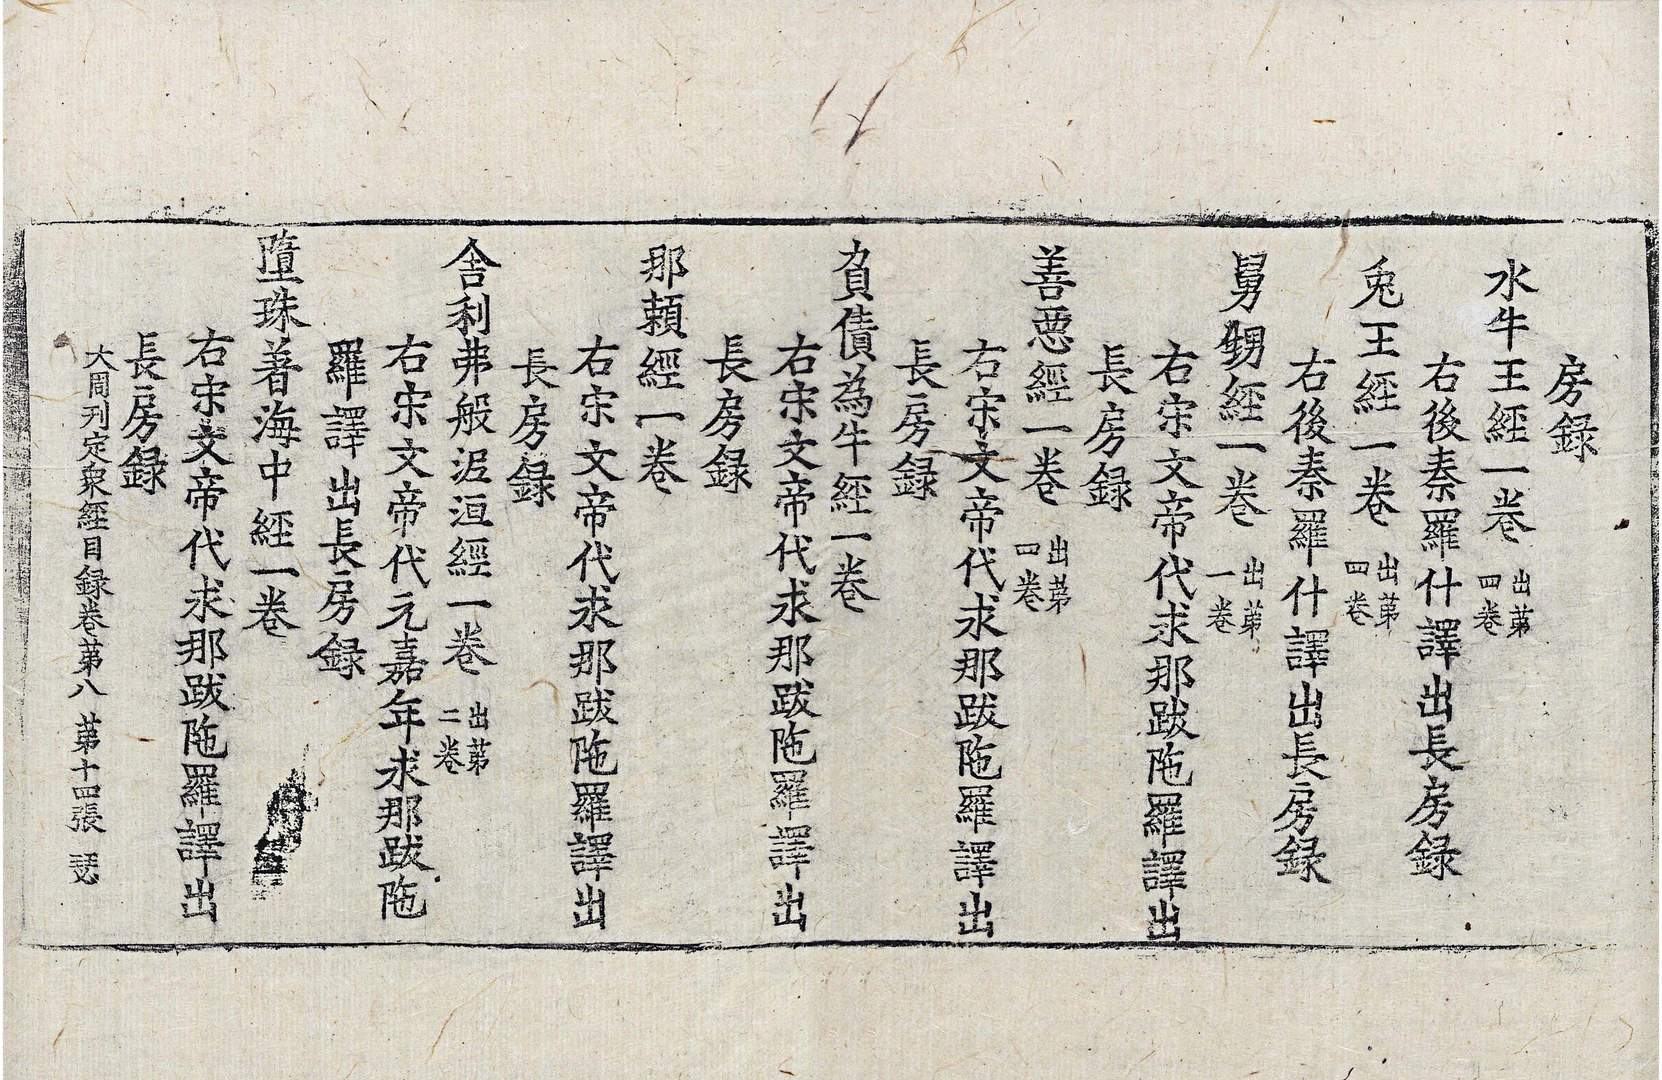 房録
水牛王經一卷 出苐四卷
右後秦羅什譯出長房録
兎王經一卷 出苐四卷
右後秦羅什譯出長房録
舅甥經一卷 出苐一卷
右宋文帝代求那跋陁羅譯出
長房録
善惡經一卷 出苐四卷
右宋文帝代求那跋陁羅譯出
長房録
負債為牛經一卷
右宋文帝代求那跋陁羅譯出
長房録
那頼經一卷
右宋文帝代求那跋陁羅譯出
長房録
舎利弗般泥洹經一卷 出苐二卷
右宋文帝代元嘉年求那跋陁
羅譯出長房録
墮珠著海中經一卷
右宋文帝代求那跋陁羅譯出
長房録
大周刋定衆經目録卷苐八 苐十四張 瑟